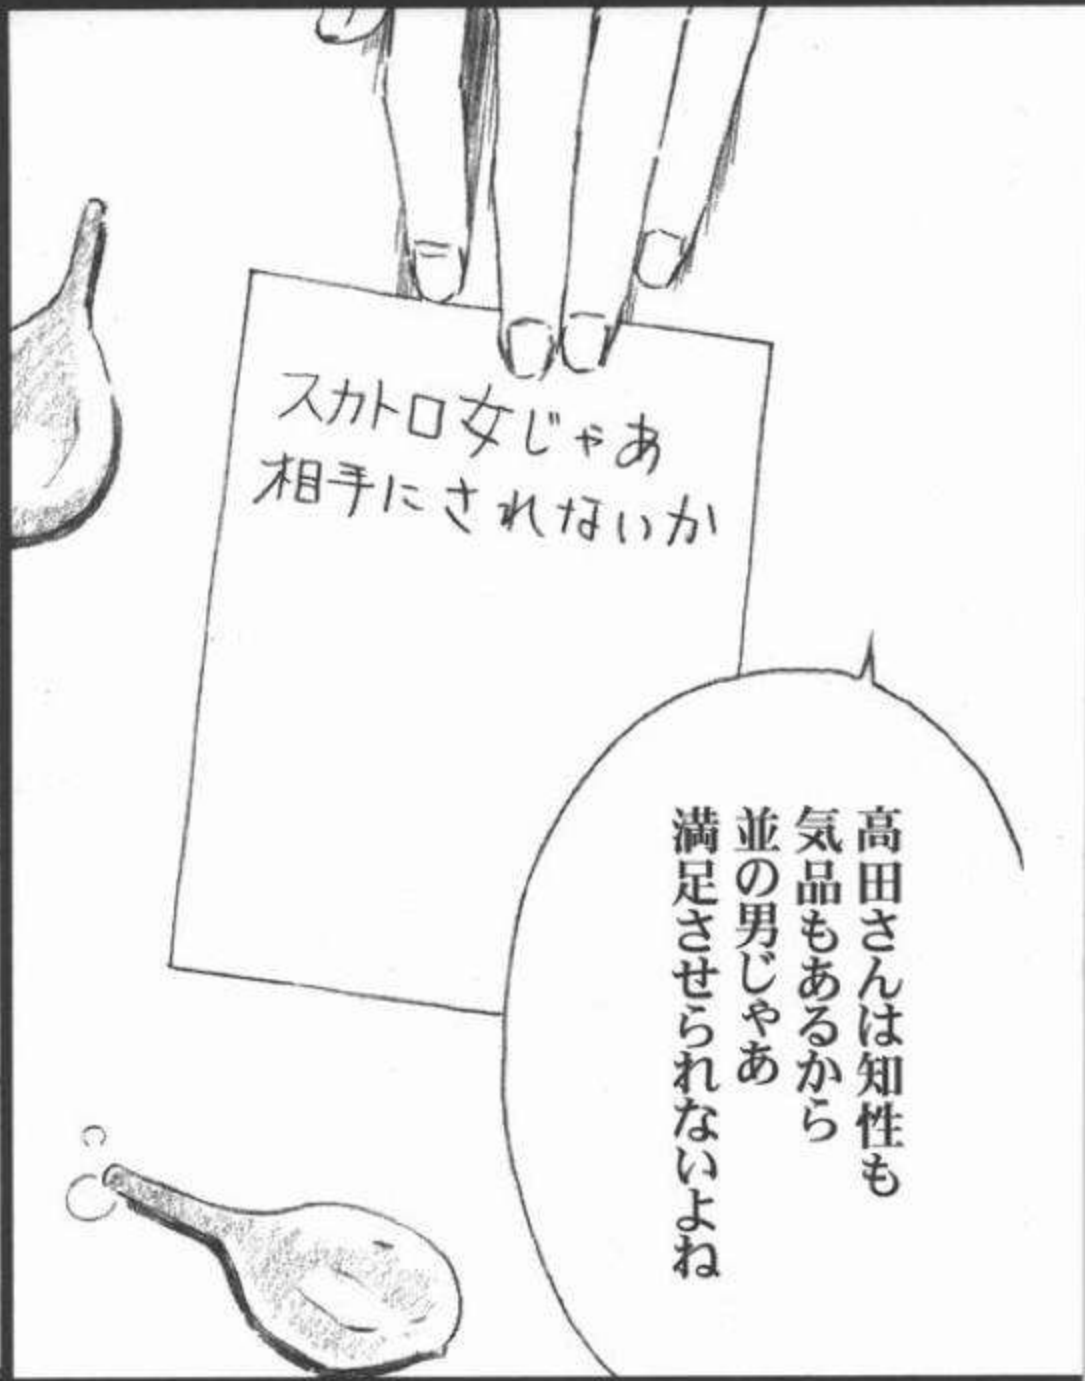 スカトロ女じゃあ
相手にされないか
高田さんは知性も
気品もあるから
並の男じゃあ
満足させられないよね